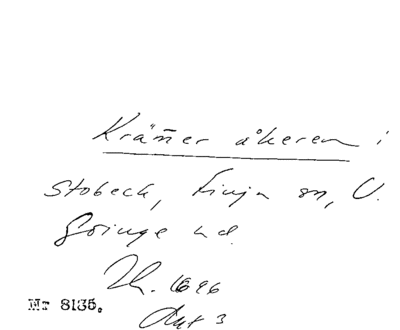 Kräm̄er åkeren i
Stobeck, Finja sn, V.
Göinge hd.
1696
Nr 8135.
Akt 3